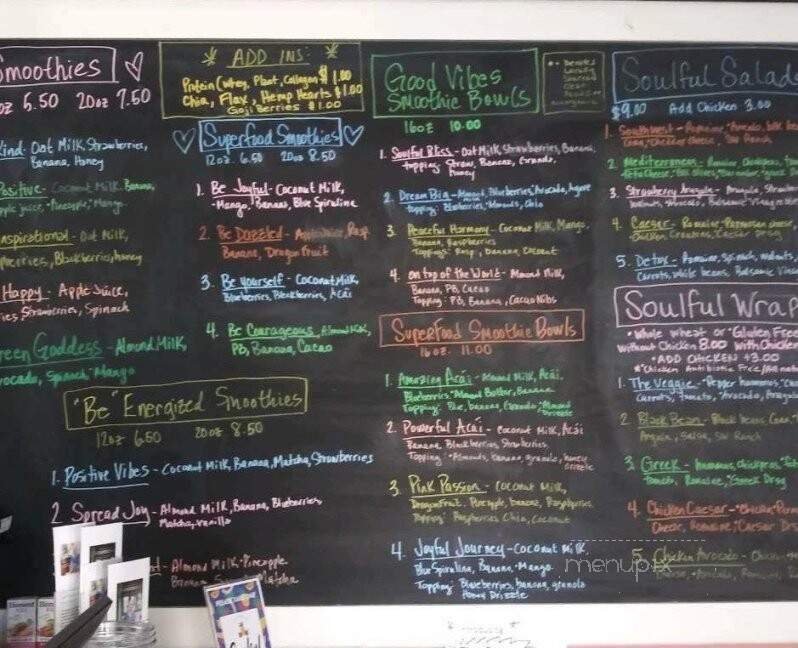 Smoothies
oz 5.50 20oz 7.50
Kind - Oat Milk, Strawberries,
Banana, Honey
Positive - Coconut Milk, Banana,
Apple juice, Pineapple, Mango
Inspirational - Oat Milk,
Blackberries, honey
Happy - Apple Juice,
Strawberries, Spinach
Green Goddess - Almond Milk,
Avocado, Spinach, Mango
ADD INS:
Protein (Whey, Plant, Collagen) $1.00
Chia, Flax, Hemp Hearts $1.00
Goji Berries $1.00
Superfood Smoothies
12oz 6.50 20oz 8.50
1. Be Joyful - Coconut Milk,
Mango, Banana, Blue Spirulina
2. Be Dazzled - Apple Juice, Rasp.
Banana, Dragonfruit
3. Be Yourself - Coconut Milk,
Blueberries, Blackberries, Acai
4. Be Courageous - Almond Milk,
PB, Banana, Cacao
"Be" Energized Smoothies
12oz 6.50 20oz 8.50
1. Positive Vibes - Coconut Milk, Banana, Matcha, Strawberries
2 Spread Joy - Almond Milk, Banana, Blueberries
Matcha, Vanilla
- Almond Milk, Pineapple
Banana Matcha
Good Vibes
Smoothie Bowls
16oz 10.00
1. Soulful Bliss - Oat Milk, Strawberries, Banana,
topping: Straw, Banana, Granola,
honey
2. Dream Big - Almond, Blueberries, Avocado, Agave
Topping: Blueberries, Almonds, Chia
3. Peaceful Harmony - Coconut Milk, Mango,
Banana, Raspberries
Toppings: Rasp, banana, Coconut
4. On top of the World - Almond Milk,
Banana, PB, Cacao
Topping: PB, Banana, Cacao Nibs
Superfood Smoothie Bowls
16oz. 11.00
1. Amazing Acai - Almond Milk, Acai,
Blueberries, Almond Butter, Banana
Topping: Blue, banana, Granola, Almond
Drizzle
2. Powerful Acai - Coconut Milk, Acai
Banana, Blackberries, Strawberries
Topping: Almonds, banana, granola, honey
drizzle
3. Pink Passion - Coconut Milk,
Dragonfruit, Pineapple, banana, Raspberries
Topping: Raspberries, Chia, Coconut
4. Joyful Journey - Coconut Milk
Blue Spirulina, Banana, Mango
Topping: Blueberries, banana, granola
Honey Drizzle
Soulful Salads
$9.00 Add Chicken 3.00
1. Southwest - Romaine, Avocado,
Corn, Cheddar Cheese, SW Ranch
2. Mediterranean - Romaine, Chickpeas,
Feta Cheese,
3. Strawberry Arugula - Arugula,
Walnuts, Avocado, Balsamic Vinaigrette
4. Caesar - Romaine, Parmesan cheese,
Chicken, Croutons, Caesar Drsg
5. Detox - Romaine, Spinach, walnuts,
Carrots, white beans, Balsamic
Soulful Wrap
• whole wheat or *Gluten Free
without Chicken 8.00 with Chicken
• ADD CHICKEN +3.00
*Chicken Antibiotic Free/All natural
1. The Veggie - Pepper hummus,
Carrots, Tomato, Avocado, Arugula
2. Black Bean - Black beans, Corn,
Arugula, Salsa, SW Ranch
3. Greek - hummus, chickpeas,
Tomato, Romaine, Greek Drsg
4. Chicken Caesar - Chicken,
Cheese, Romaine, Caesar Drs
5. Chicken Avocado - Chicken
Cheese, Avocado,
menupix